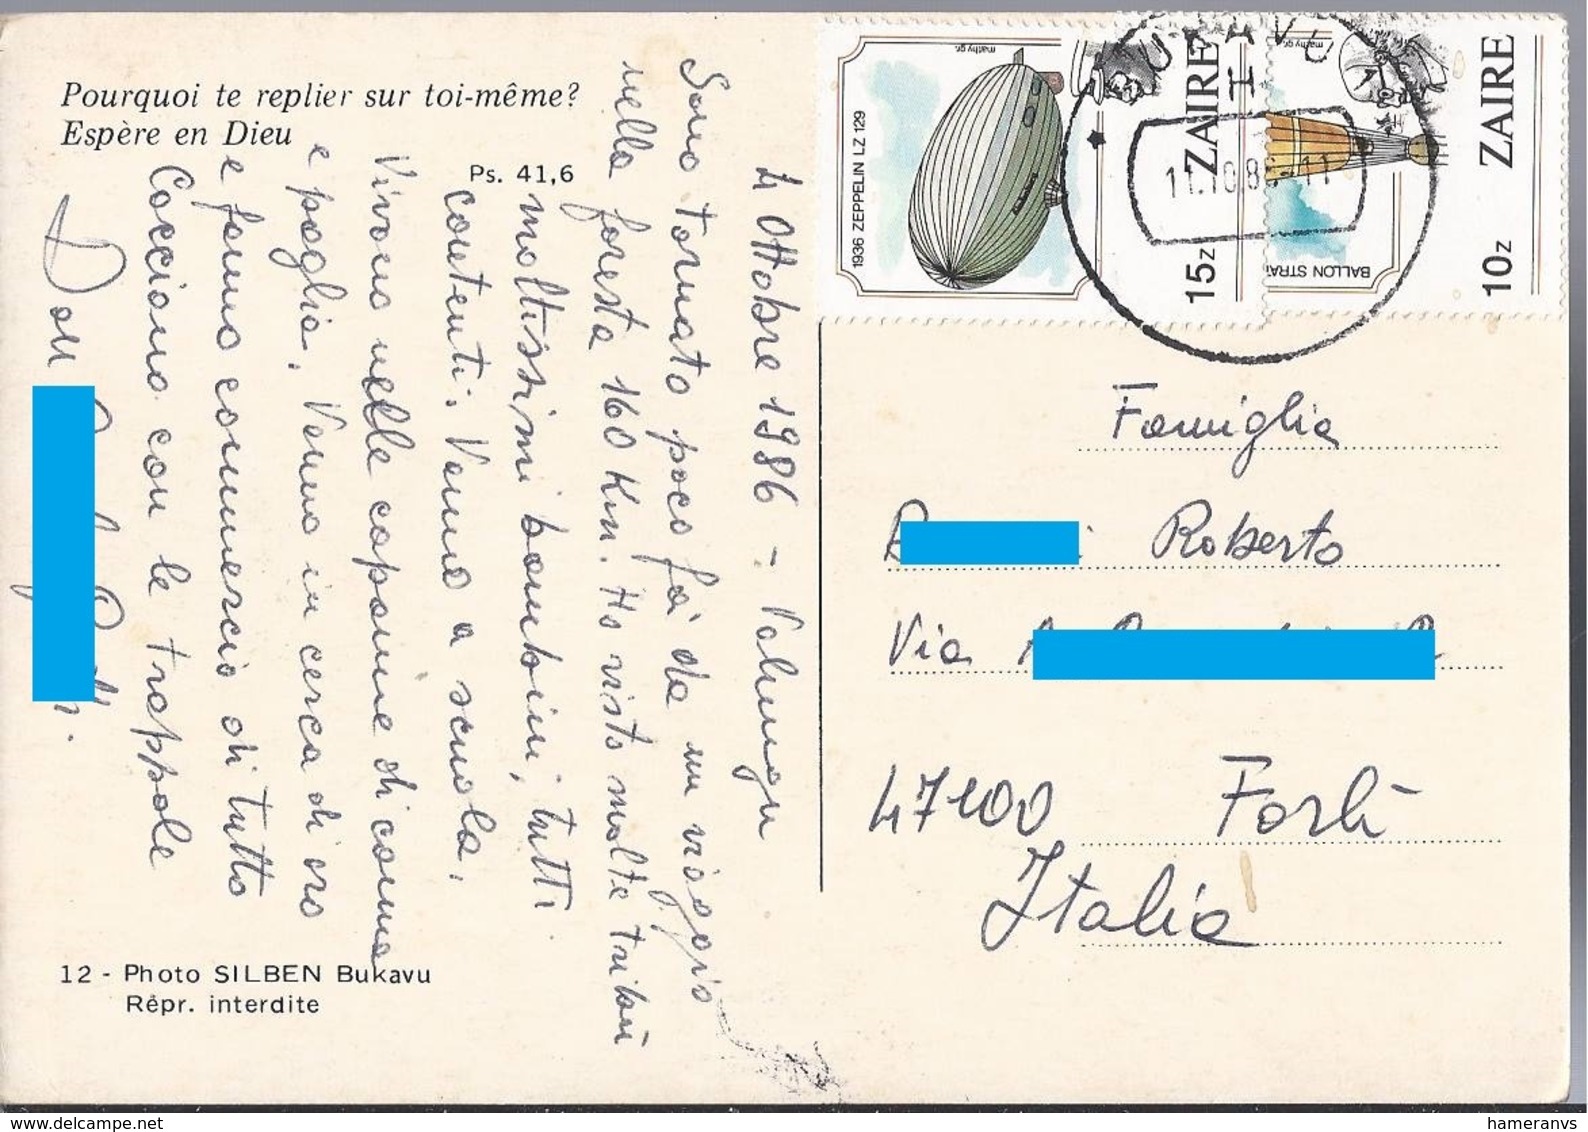 Pourquoi te replier sur toi-même?
Espère en Dieu
Ps. 41,6
4 Ottobre 1986 -
Sono tornato poco fà da un viaggio
nella foresta 160 Km. Ho visto molte tribù
moltissimi bambini, tutti
contenti. Vanno a scuola.
Vivono nelle capanne di canna
e paglia. Vanno in cerca di oro
e fanno commercio di tutto
Cacciano con le trappole
Don
12 - Photo SILBEN Bukavu
Rêpr. interdite
mathy gr.
1936 ZEPPELIN LZ 129
ZAIRE
15z
mathy gr.
BALLON STRAT
ZAIRE
10z
BUKAVU
11.10.86-11
Famiglia
Roberto
Via
47100 Forlì
Italia
hameranvs
www.delcampe.net